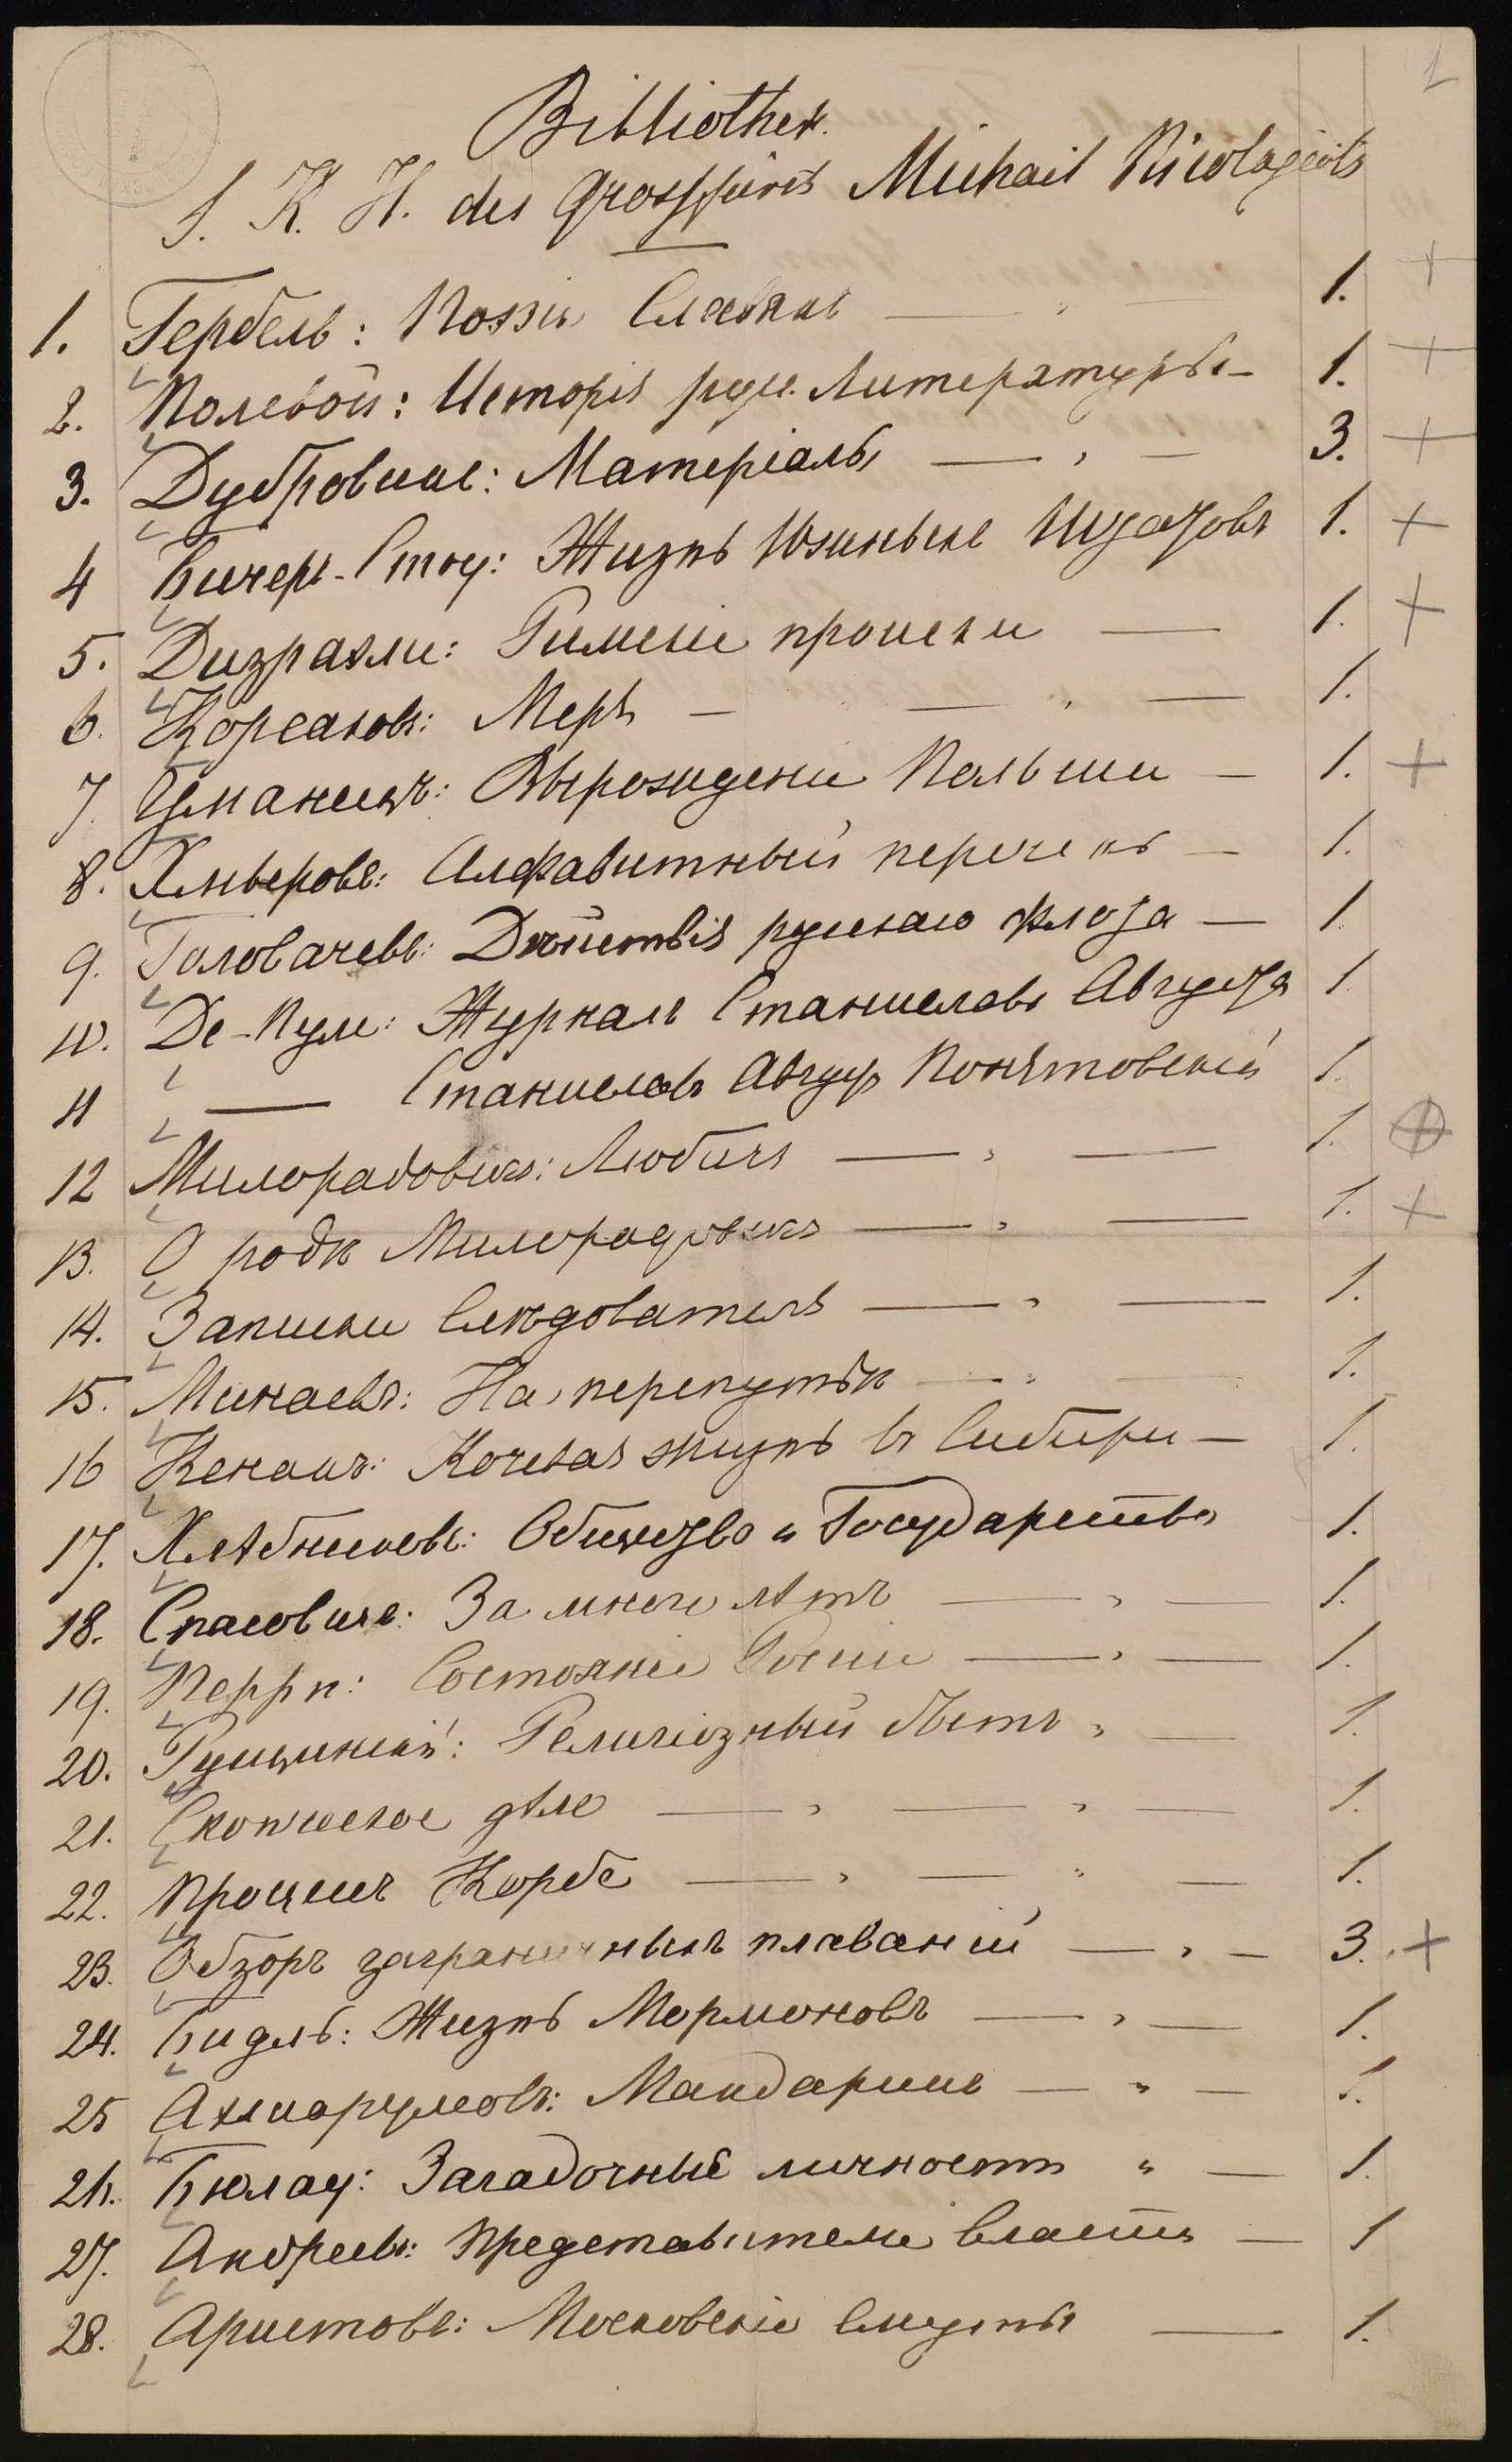 1
Bibliothek.
S. K. H. des Grossfürsts Michail Nicolajewits
1. Гербель: Поэзія Славянъ — 1. +
2. Полевой: Исторія рус. Литературы — 1. +
3. Дубровинъ: Матеріалы — „ — 3. +
4 Бичеръ-Стоу: Жизнь Южныхъ Штатовъ 1. +
5. Дизраэли: Римскіе происки — 1. +
6. Корсаковъ: Меря — — „ — 1.
7. Уманецъ: Вырожденіе Польши — 1. +
8. Хмыровъ: Алфавитный перечень — 1.
9. Головачевъ: Дѣйствія русскаго флота — 1
10. Де-Пуле: Журналъ Станислава Августа 1.
11 — Станиславъ Августъ Понятовскій 1.
12 Милорадовичъ: Любечъ — „ — 1. +
13. О родѣ Милорадовичъ — „ — 1. +
14. Записки Слѣдователя — „ — 1.
15. Минаевъ: На перепутьи — „ — 1.
16 Кенанъ: Кочевая жизнь въ Сибири — 1.
17. Хлѣбниковъ: Общество и Государство 1.
18. Спасовичъ: За много лѣтъ — „ — 1.
19. Перри: Состояніе Россіи — „ — 1.
20. Рущинскій: Религіозный бытъ „ — 1.
21. Скопческое дѣло — „ — „ — 1.
22. Процессъ Корбе — „ — „ — 1.
23. Обзоръ заграничныхъ плаваній — „ — 3. +
24. Бидль: Жизнь Мормоновъ — „ — 1.
25 Ахшарумовъ: Мандаринъ — „ — 1.
26. Бюлау: Загадочные личности „ — 1.
27. Андреевъ: Представители власти — 1
28. Аристовъ: Московскіе Смуты — 1.